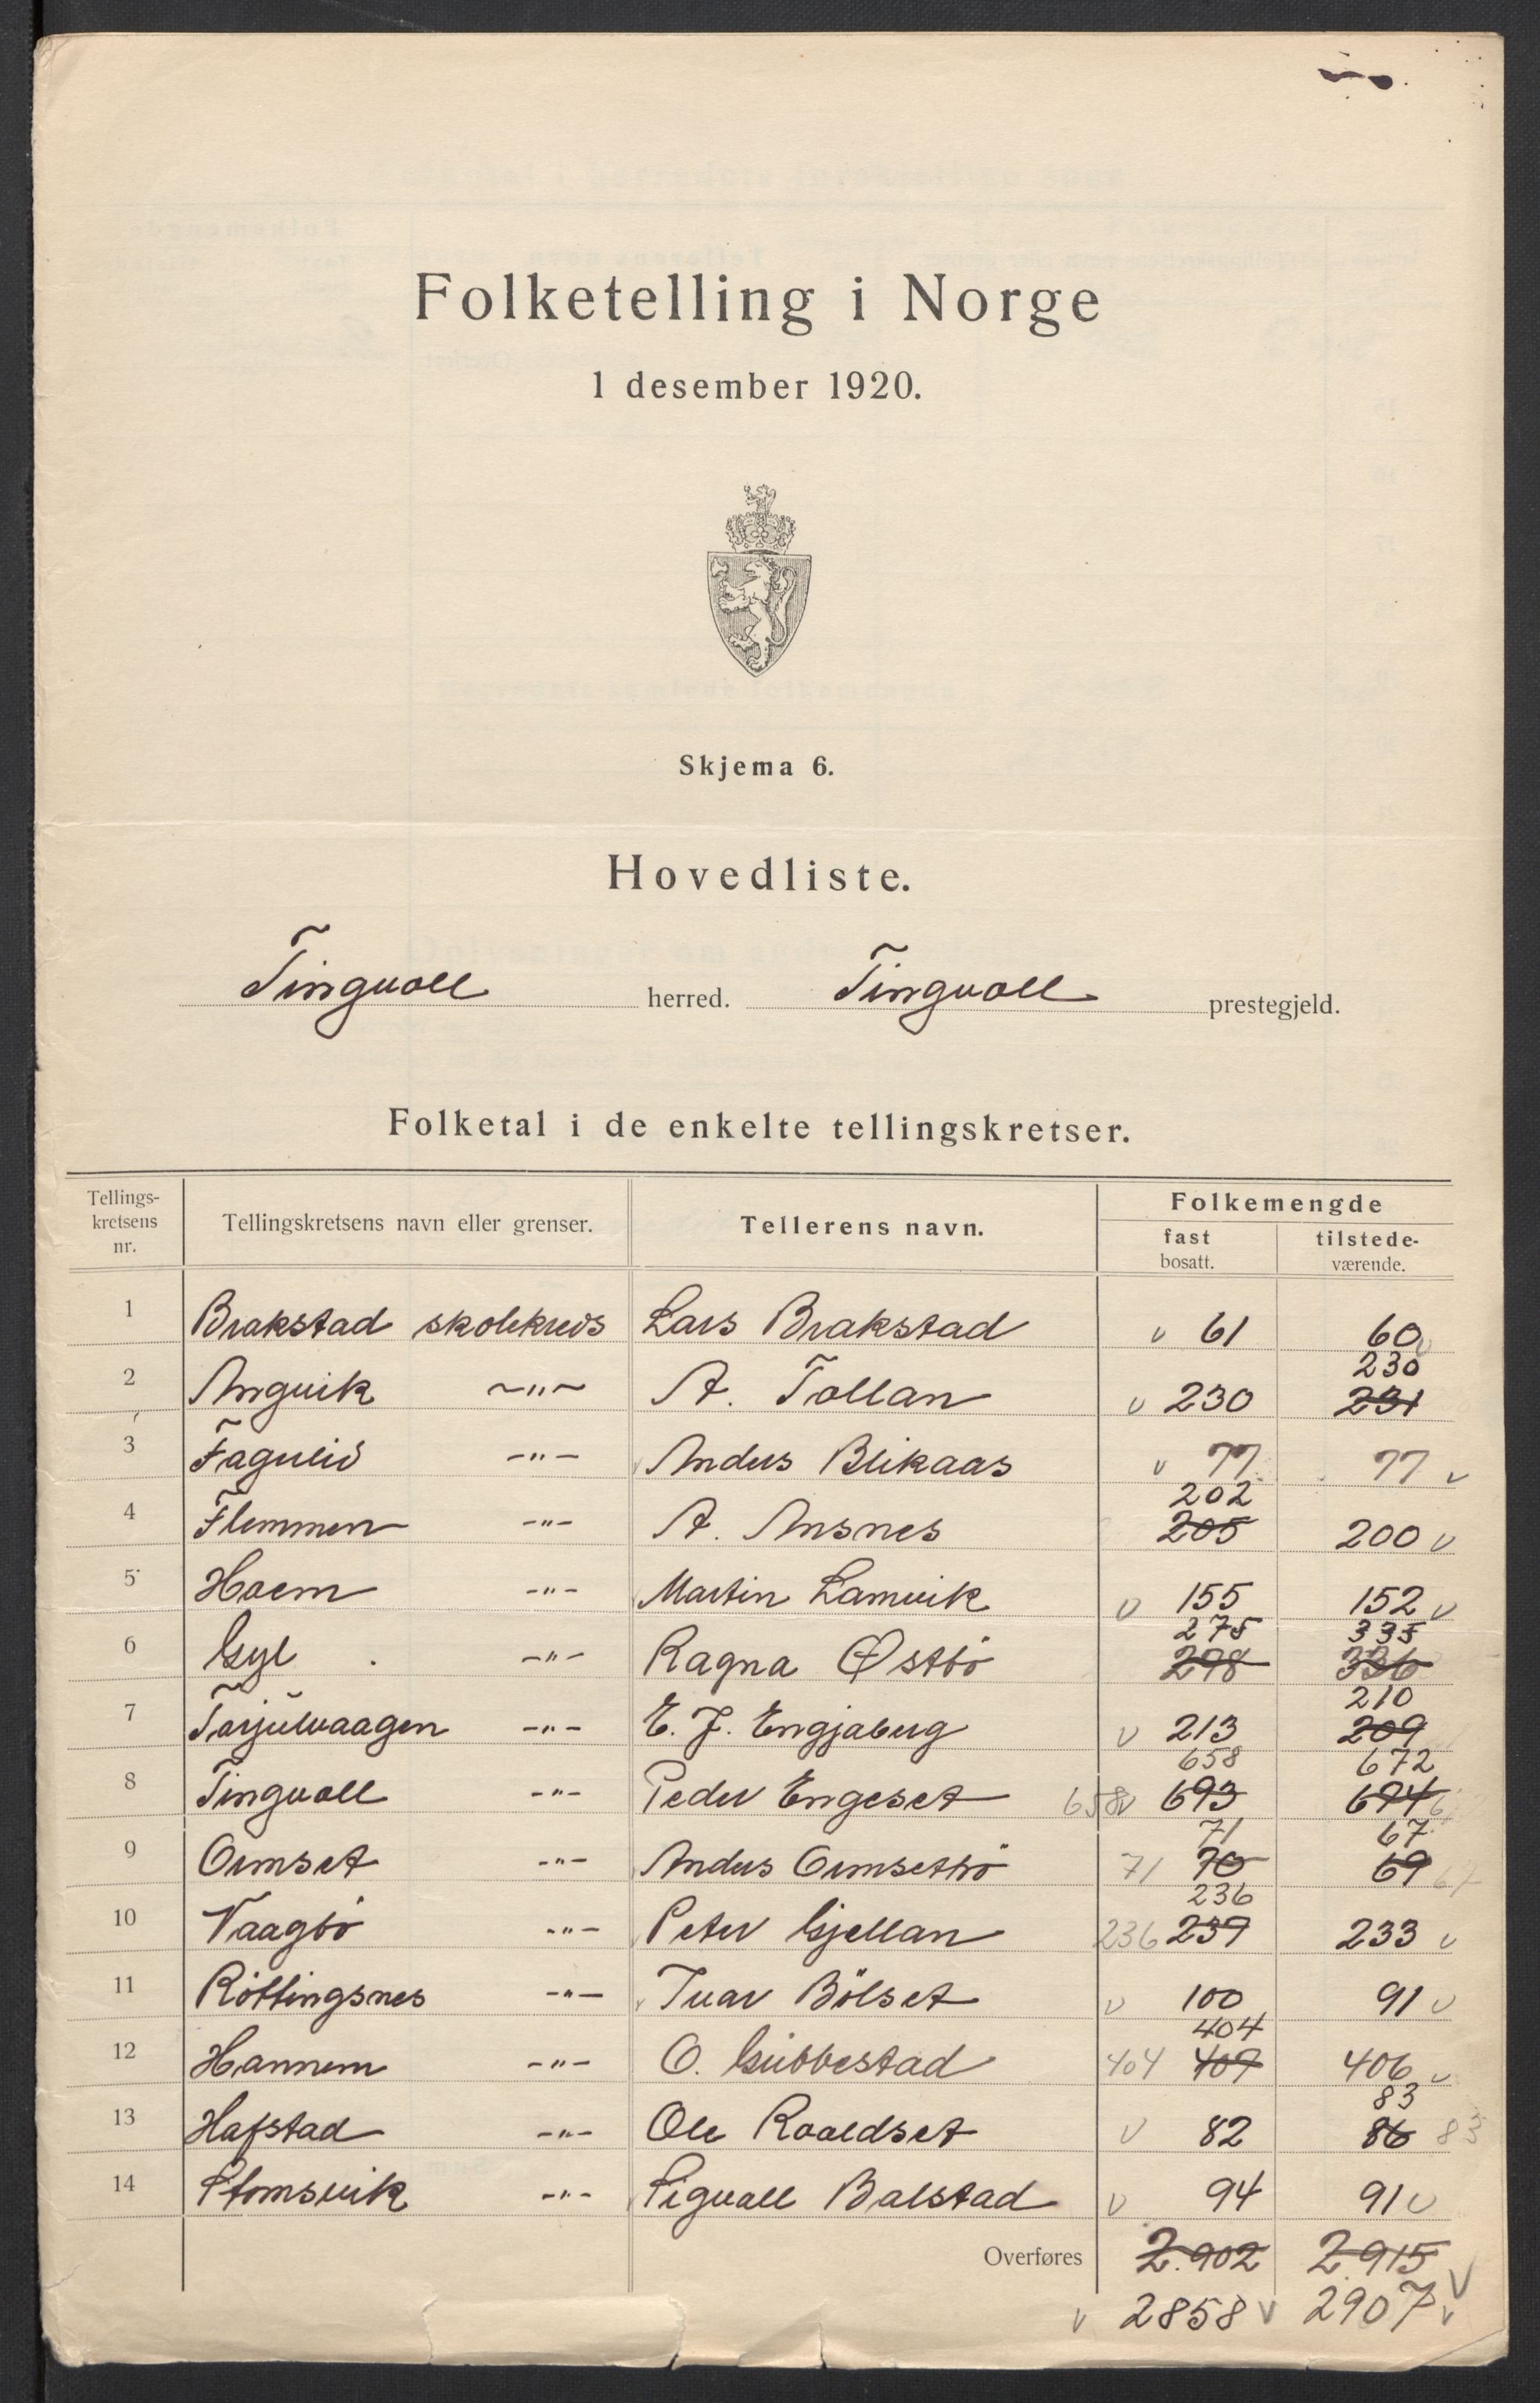 Folketelling i Norge
1 desember 1920.
Skjema 6.
Hovedliste.
Tingvoll herred. Tingvoll prestegjeld.
Folketal i de enkelte tellingskretser.
Tellings-kretsens nr. Tellingskretsens navn eller grenser. Tellerens navn. Folkemengde fast bosatt. tilstede-værende.
1 Brakstad skolekreds Lars Brakstad v 61 60 v
230
2 Angvik -"- A. Tollan v 230 231
3 Fagerlid -"- Anders Blikaas v 77 77 v
202
4 Flemmen -"- A. Ansnes 205 200 v
5 Hoem -"- Martin Lamvik v 155 152 v
275 335
6 Gyl -"- Ragna Østbö 298 336
210
7 Torjulvaagen -"- E. J. Engjaberg v 213 209
658 672
8 Tingvoll -"- Peder Engeset 658 v 693 674
71 67
9 Ormset -"- Anders Ormsetbö 71 70 69 67
236
10 Vaagbö -"- Peter Gjellan 236 239 233 v
11 Röttingsnes -"- Ivar Bölset v 100 91 v
404
12 Hannem -"- O. Gubbestad 404 409 406 v
83
13 Hafstad -"- Ole Roaldset v 82 86 83
14 Stomsvik -"- Sigvall Balstad v 94 91 v
Overføres 2.902 2.915 v
v 2858 v 2907 v